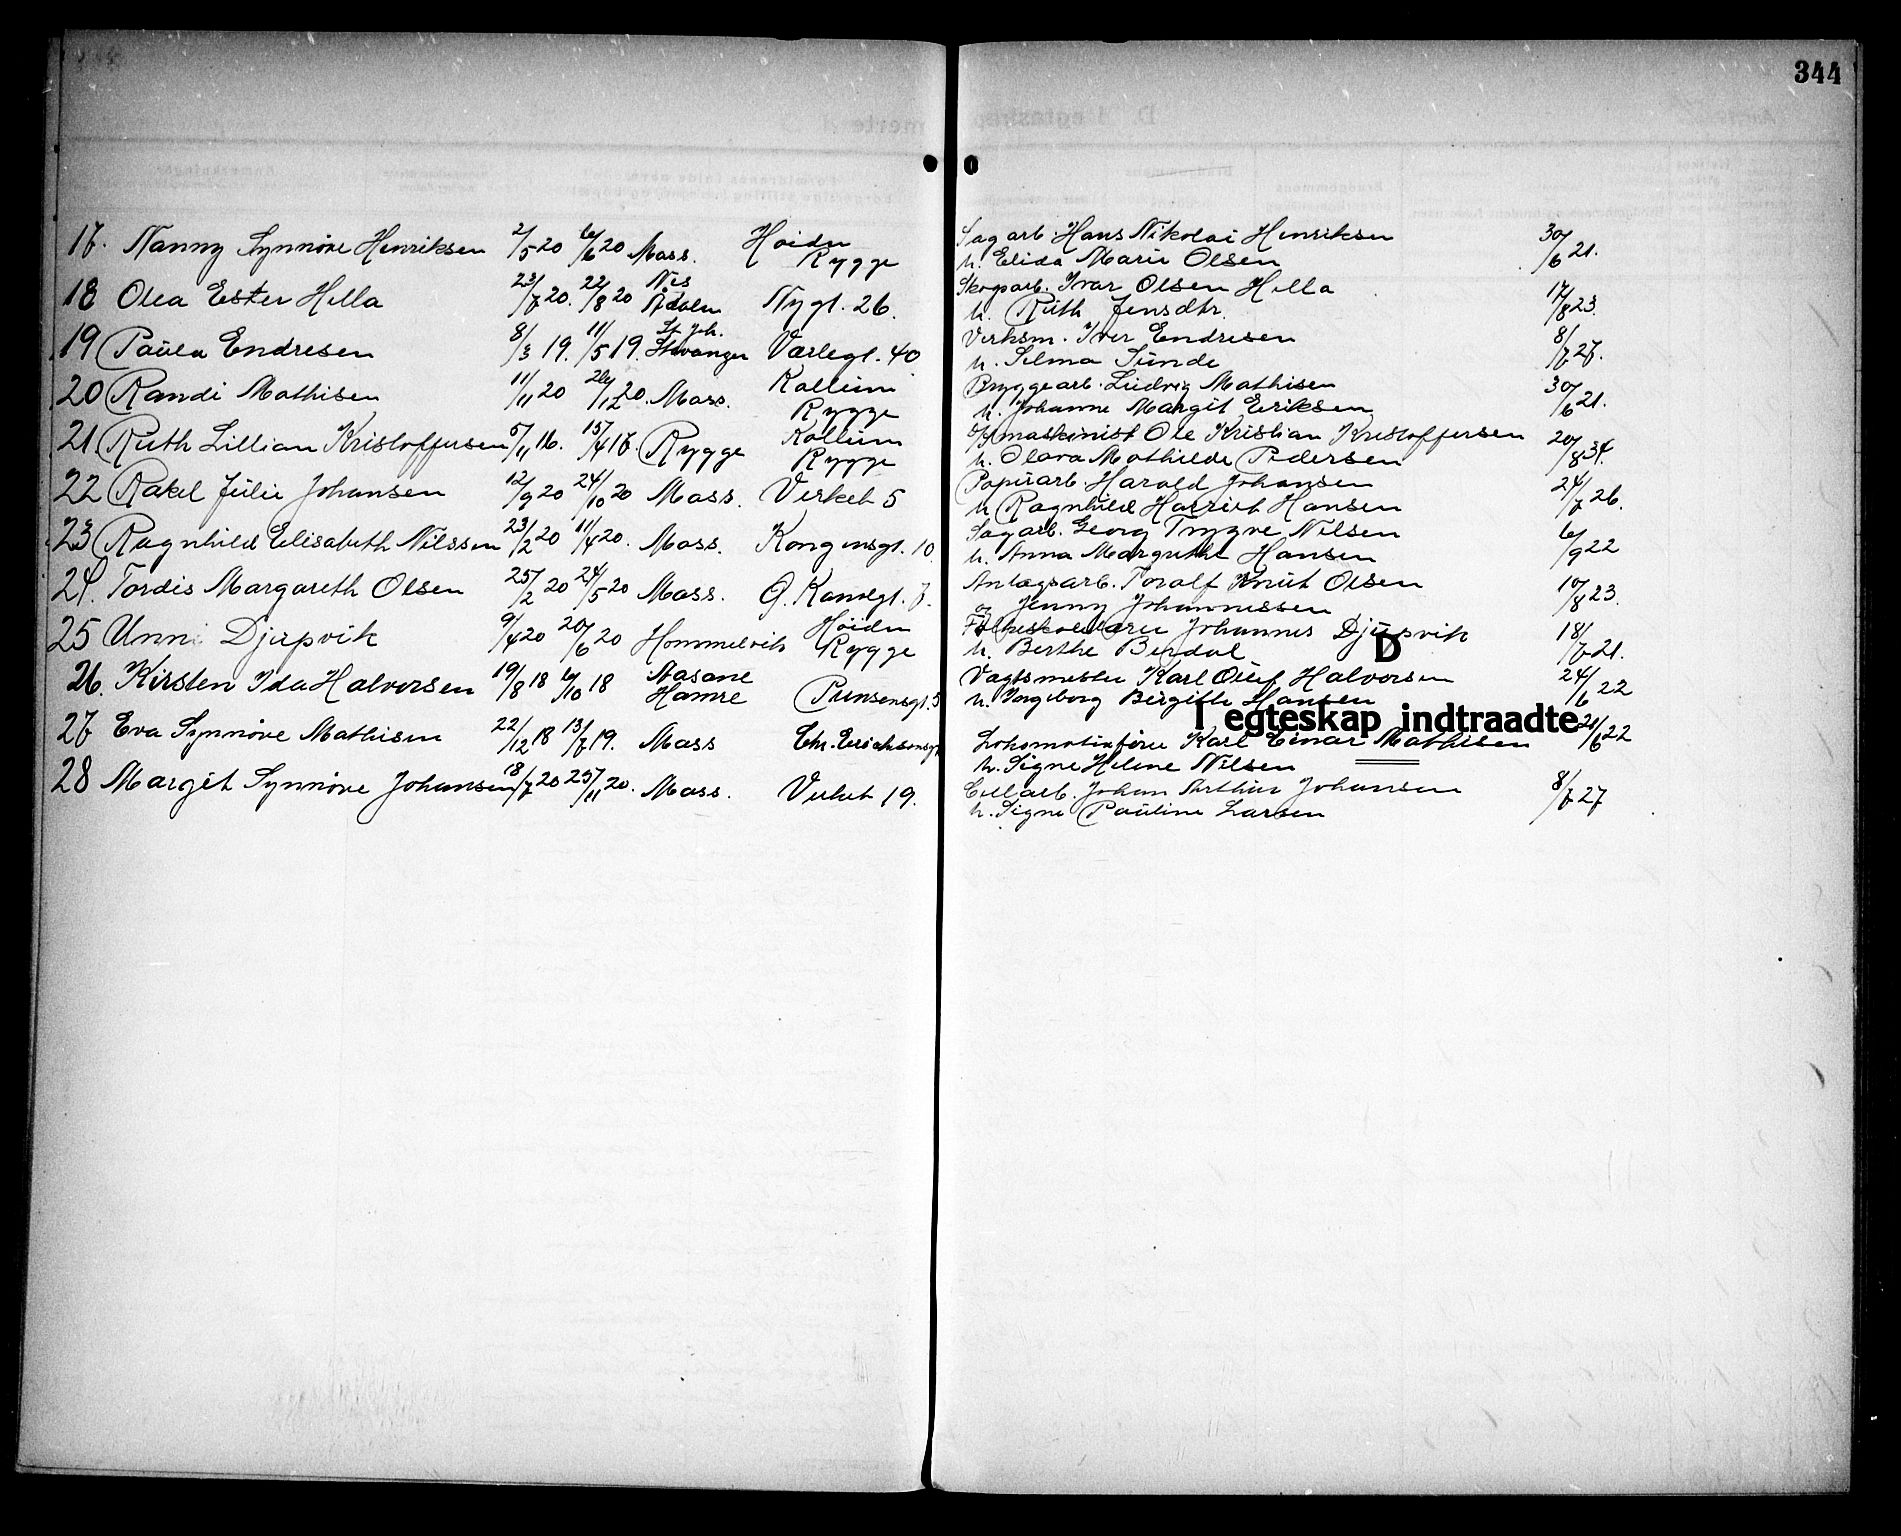 344
17. Nanny Synnöve Henriksen 2/5 20 6/6 20 Moss. Höiden Rygge Sagarb. Hans Nikolai Henriksen 30/6 21.
h. Elida Marie Olsen
18 Olea Ester Hella 23/7 20. 22/8 20 Nes Ådalen Nygt. 26. Skogsarb. Ivar Olsen Hella 17/8 23.
h. Ruth Jensdtr.
19 Paula Endresen 8/3 19. 11/5 19. St. Joh. Stavanger Varlegt. 40 Verksm. Iver Endresen 8/7 27.
h. Selma Sunde
20 Randi Mathisen 11/11 20 26/12 20. Moss. Kallum Rygge Bryggearb. Ludvig Mathisen 30/6 21.
h. Johanne Margit Eriksen
21 Ruth Lillian Kristoffersen 5/11 16. 15/4 17. Rygge Kallum Rygge maskinist Ole Kristian Kristoffersen 20/8 34.
h. Olava Mathilde Pedersen
22 Rakel Julie Johansen 12/9 20 24/10 20 Moss. Verket 5 Papirarb. Harald Johansen 24/7 26.
h. Ragnhild Harriet Hansen
23 Ragnhild Elisabeth Nilssen 23/2 20 11/4 20. Moss. Kongensgt. 10. Sagarb. Georg Trygve Nilsen 6/9 22
h. Anna Margrethe Hansen
24. Tordis Margareth Olsen 25/2 20 24/5 20 Moss. G. Kanalgt. 7. Anlægsarb. Toralf Knut Olsen 10/8 23.
og Jenny Johannessen
25 Unni Djupvik 9/4 20 20/6 20 Hommelvik Höiden Rygge Folkeskolelærer Johannes Djupvik 18/7 21.
h. Berthe Berdal
D
26. Kirsten Ida Halvorsen 19/8 18 6/10 18 Aasane Hamre Prinsensgt. 5 Vagtmester Karl Oluf Halvorsen 24/6 22
h. Ingeborg Birgitte Hansen
I egteskap indtraadte
27 Eva Synnöve Mathisen 22/12 18 13/7 19. Moss Chr. Erichsensgt Lokomotivförer Karl Einar Mathisen 21/6 22
h. Signe Helene Nilsen
28 Margit Synnöve Johansen 18/7 20 25/11 20. Moss. Verket 19. Cellarb. Johan Arthur Johansen 8/7 27
h. Signe Pauline Larsen